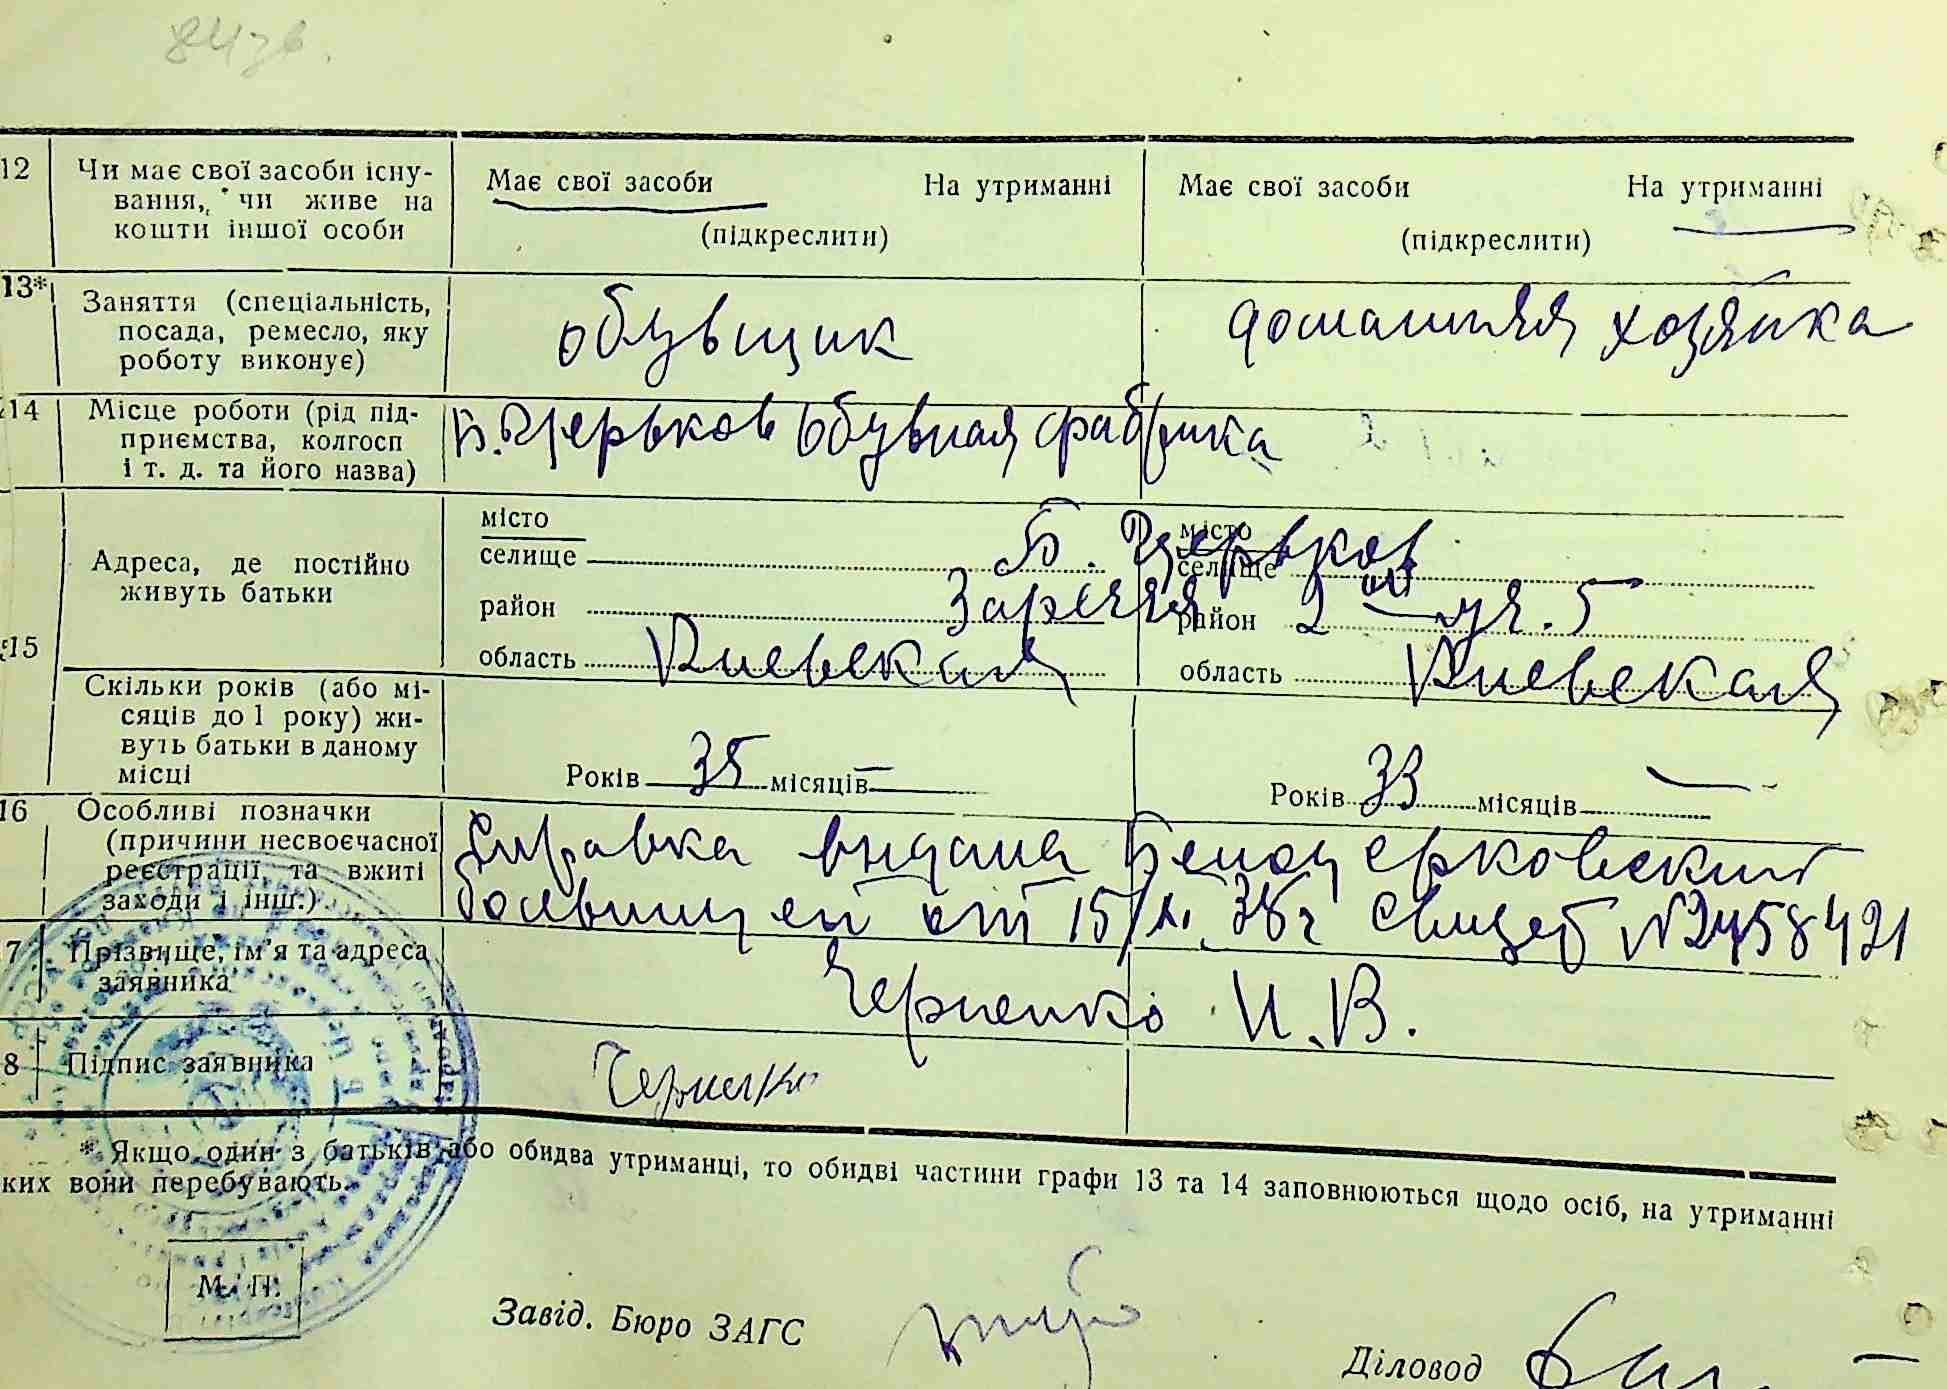 12 Чи має свої засоби існу-
вання, чи живе на
кошти іншої особи
Має свої засоби На утриманні
(підкреслити)
Має свої засоби На утриманні
(підкреслити)
13* Заняття (спеціальність,
посада, ремесло, яку
роботу виконує)
обувщик
домашняя хозяйка
14 Місце роботи (рід під-
приємства, колгосп
і т. д. та його назва)
Б. Церьков обувная фабрика
15
Адреса, де постійно
живуть батьки
місто
селище
район
область Киевская
Б. Церьков
Заречья 2 ой уч. 5
місто
селище
район
область Киевская
Скільки років (або мі-
сяців до 1 року) жи-
вуть батьки в даному
місці
Років 35 місяців —
Років 33 місяців —
16 Особливі позначки
(причини несвоєчасної
реєстрації та вжиті
заходи і інш.)
Справка выдана Белоцерковский
больницей от 15/XI 38 г Свидет №2458421
7 Прізвище, ім'я та адреса
заявника
Черненко И. В.
8 Підпис заявника
* Якщо один з батьків або обидва утриманці, то обидві частини графи 13 та 14 заповнюються щодо осіб, на утриманні
ких вони перебувають.
М. П.
Завід. Бюро ЗАГС
Діловод